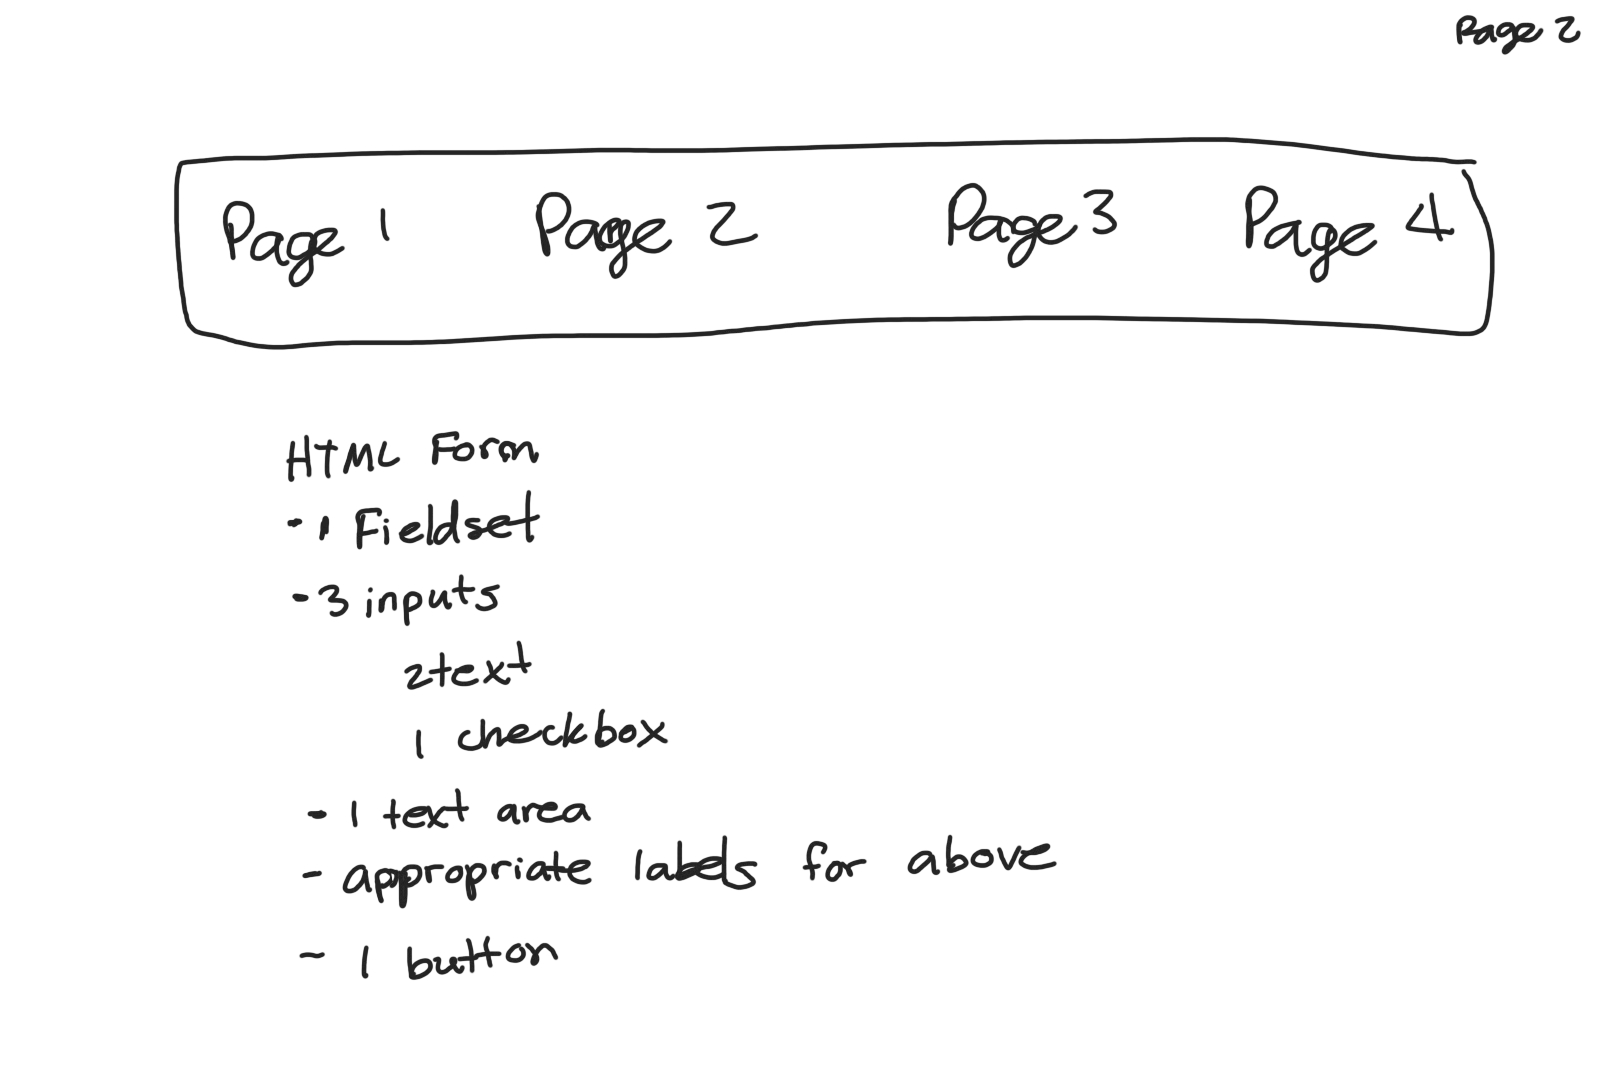 Page 2
Page 1 Page 2 Page 3 Page 4
HTML Form
- 1 Fieldset
- 3 inputs
2 text
1 checkbox
- 1 text area
- appropriate labels for above
- 1 button